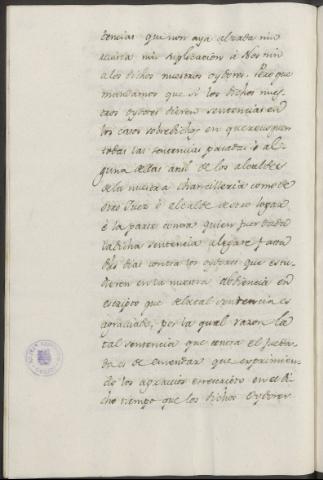 tencias que non aya alzada nin
vista nin suplicacion à Nos nin
a los dichos nuestros oydores. Pero que
mandamos que si los dichos nues
tros oydores dieren sentencias en
los casos sobredichos en que
todas las sentencias pasadas ó al
guna dellas ansi de los alcaldes
de la nuestra chancilleria como de
otro Juez ó alcalde de otro logar
é la parte contra quien fuer dada
la dicha sentencia alegare fasta
dias contra los oydores que estu
dieren en la nuestra abdiencia en
escripto que de la tal sentencia es
agraviado, por la qual razon la
tal sentencia que contra el fue da
da es de enmendar que exprimien
do los agravios en escripto en el di
cho tiempo que los dichos oydores